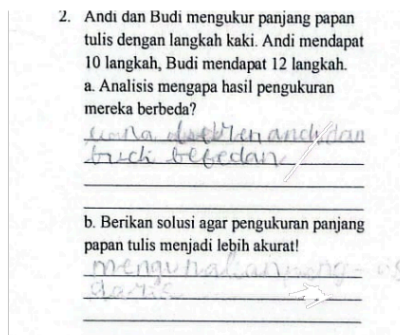 2. Andi dan Budi mengukur panjang papan
tulis dengan langkah kaki. Andi mendapat
10 langkah, Budi mendapat 12 langkah.
a. Analisis mengapa hasil pengukuran
mereka berbeda?
andi dan
budi
b. Berikan solusi agar pengukuran panjang
papan tulis menjadi lebih akurat!